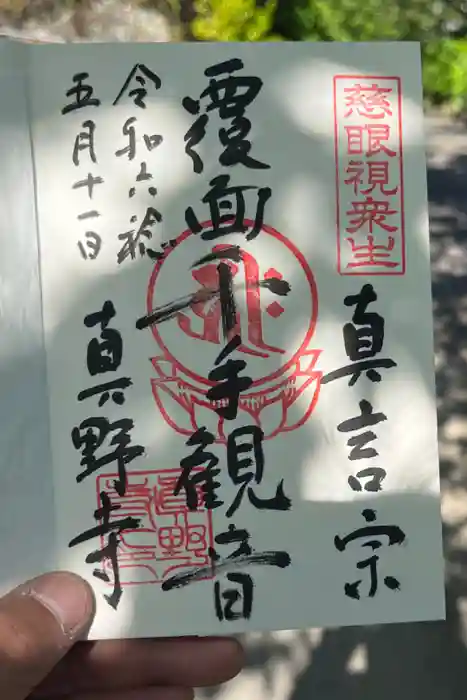 慈眼視衆生
真言宗
覆面千手観音
令和六年
五月十一日
真野寺